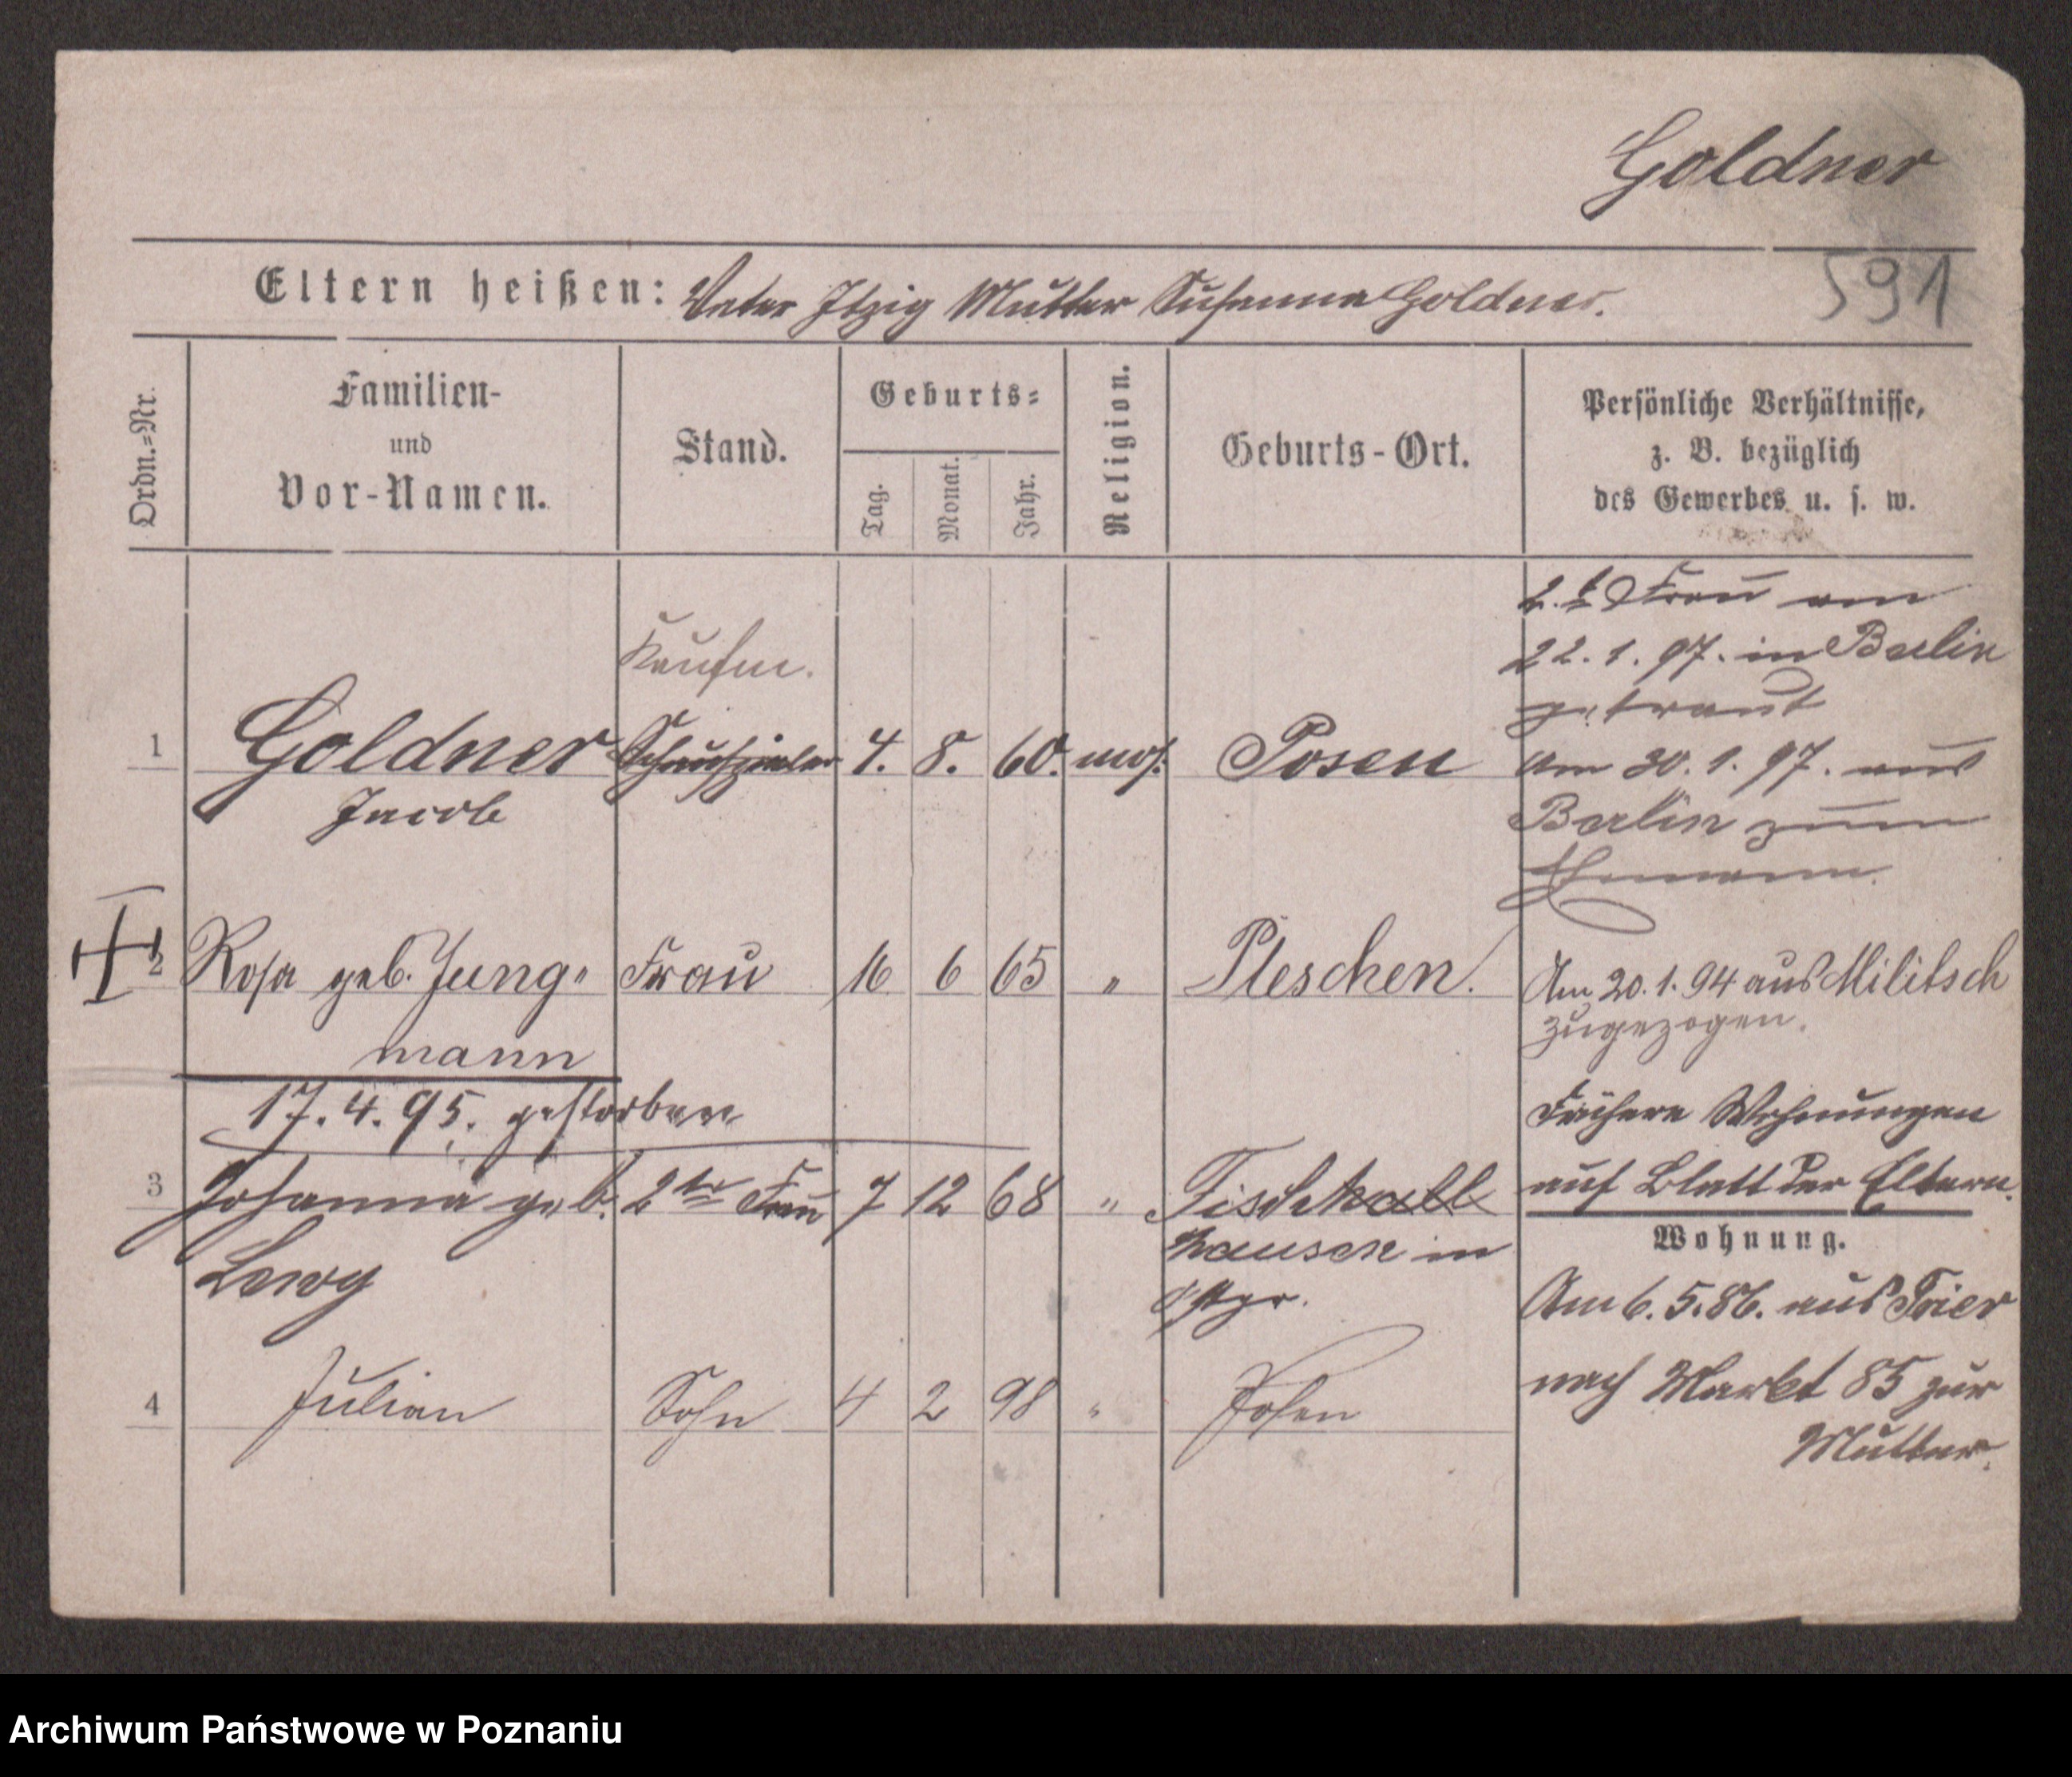 Goldner
591
Eltern heißen: Vater Itzig Mutter Susanna Goldner.
Ordn.=Nr.
Familien-
und
Vor-Namen.
Stand.
Geburts=
Tag.
Monat.
Jahr.
Religion.
Geburts-Ort.
Persönliche Verhältnisse,
z. B. bezüglich
des Gewerbes u. s. w.
Kaufm.
1 Goldner Schauspieler 4. 8. 60. mos. Posen
Jacob
2. te Frau am
22. 1. 97. in Berlin
getraut
Am 30. 1. 97. aus
Berlin zum
Ehemann.
2 Rosa geb. Jung= Frau 16 6 65 " Pleschen.
mann
Am 20. 1. 94 aus Militsch
zugezogen.
17. 4. 95. gestorben
3 Johanna geb. 2te Frau 7 12 68 " Fischhall
Lewy
hausen in
Ostpr.
Frühere Wohnungen
auf Blatt der Eltern.
Wohnung.
Am 6. 5. 86. aus Trier
nach Markt 85 zur
Mutter.
4 Julian Sohn 4 2 98 " Posen
Archiwum Państwowe w Poznaniu